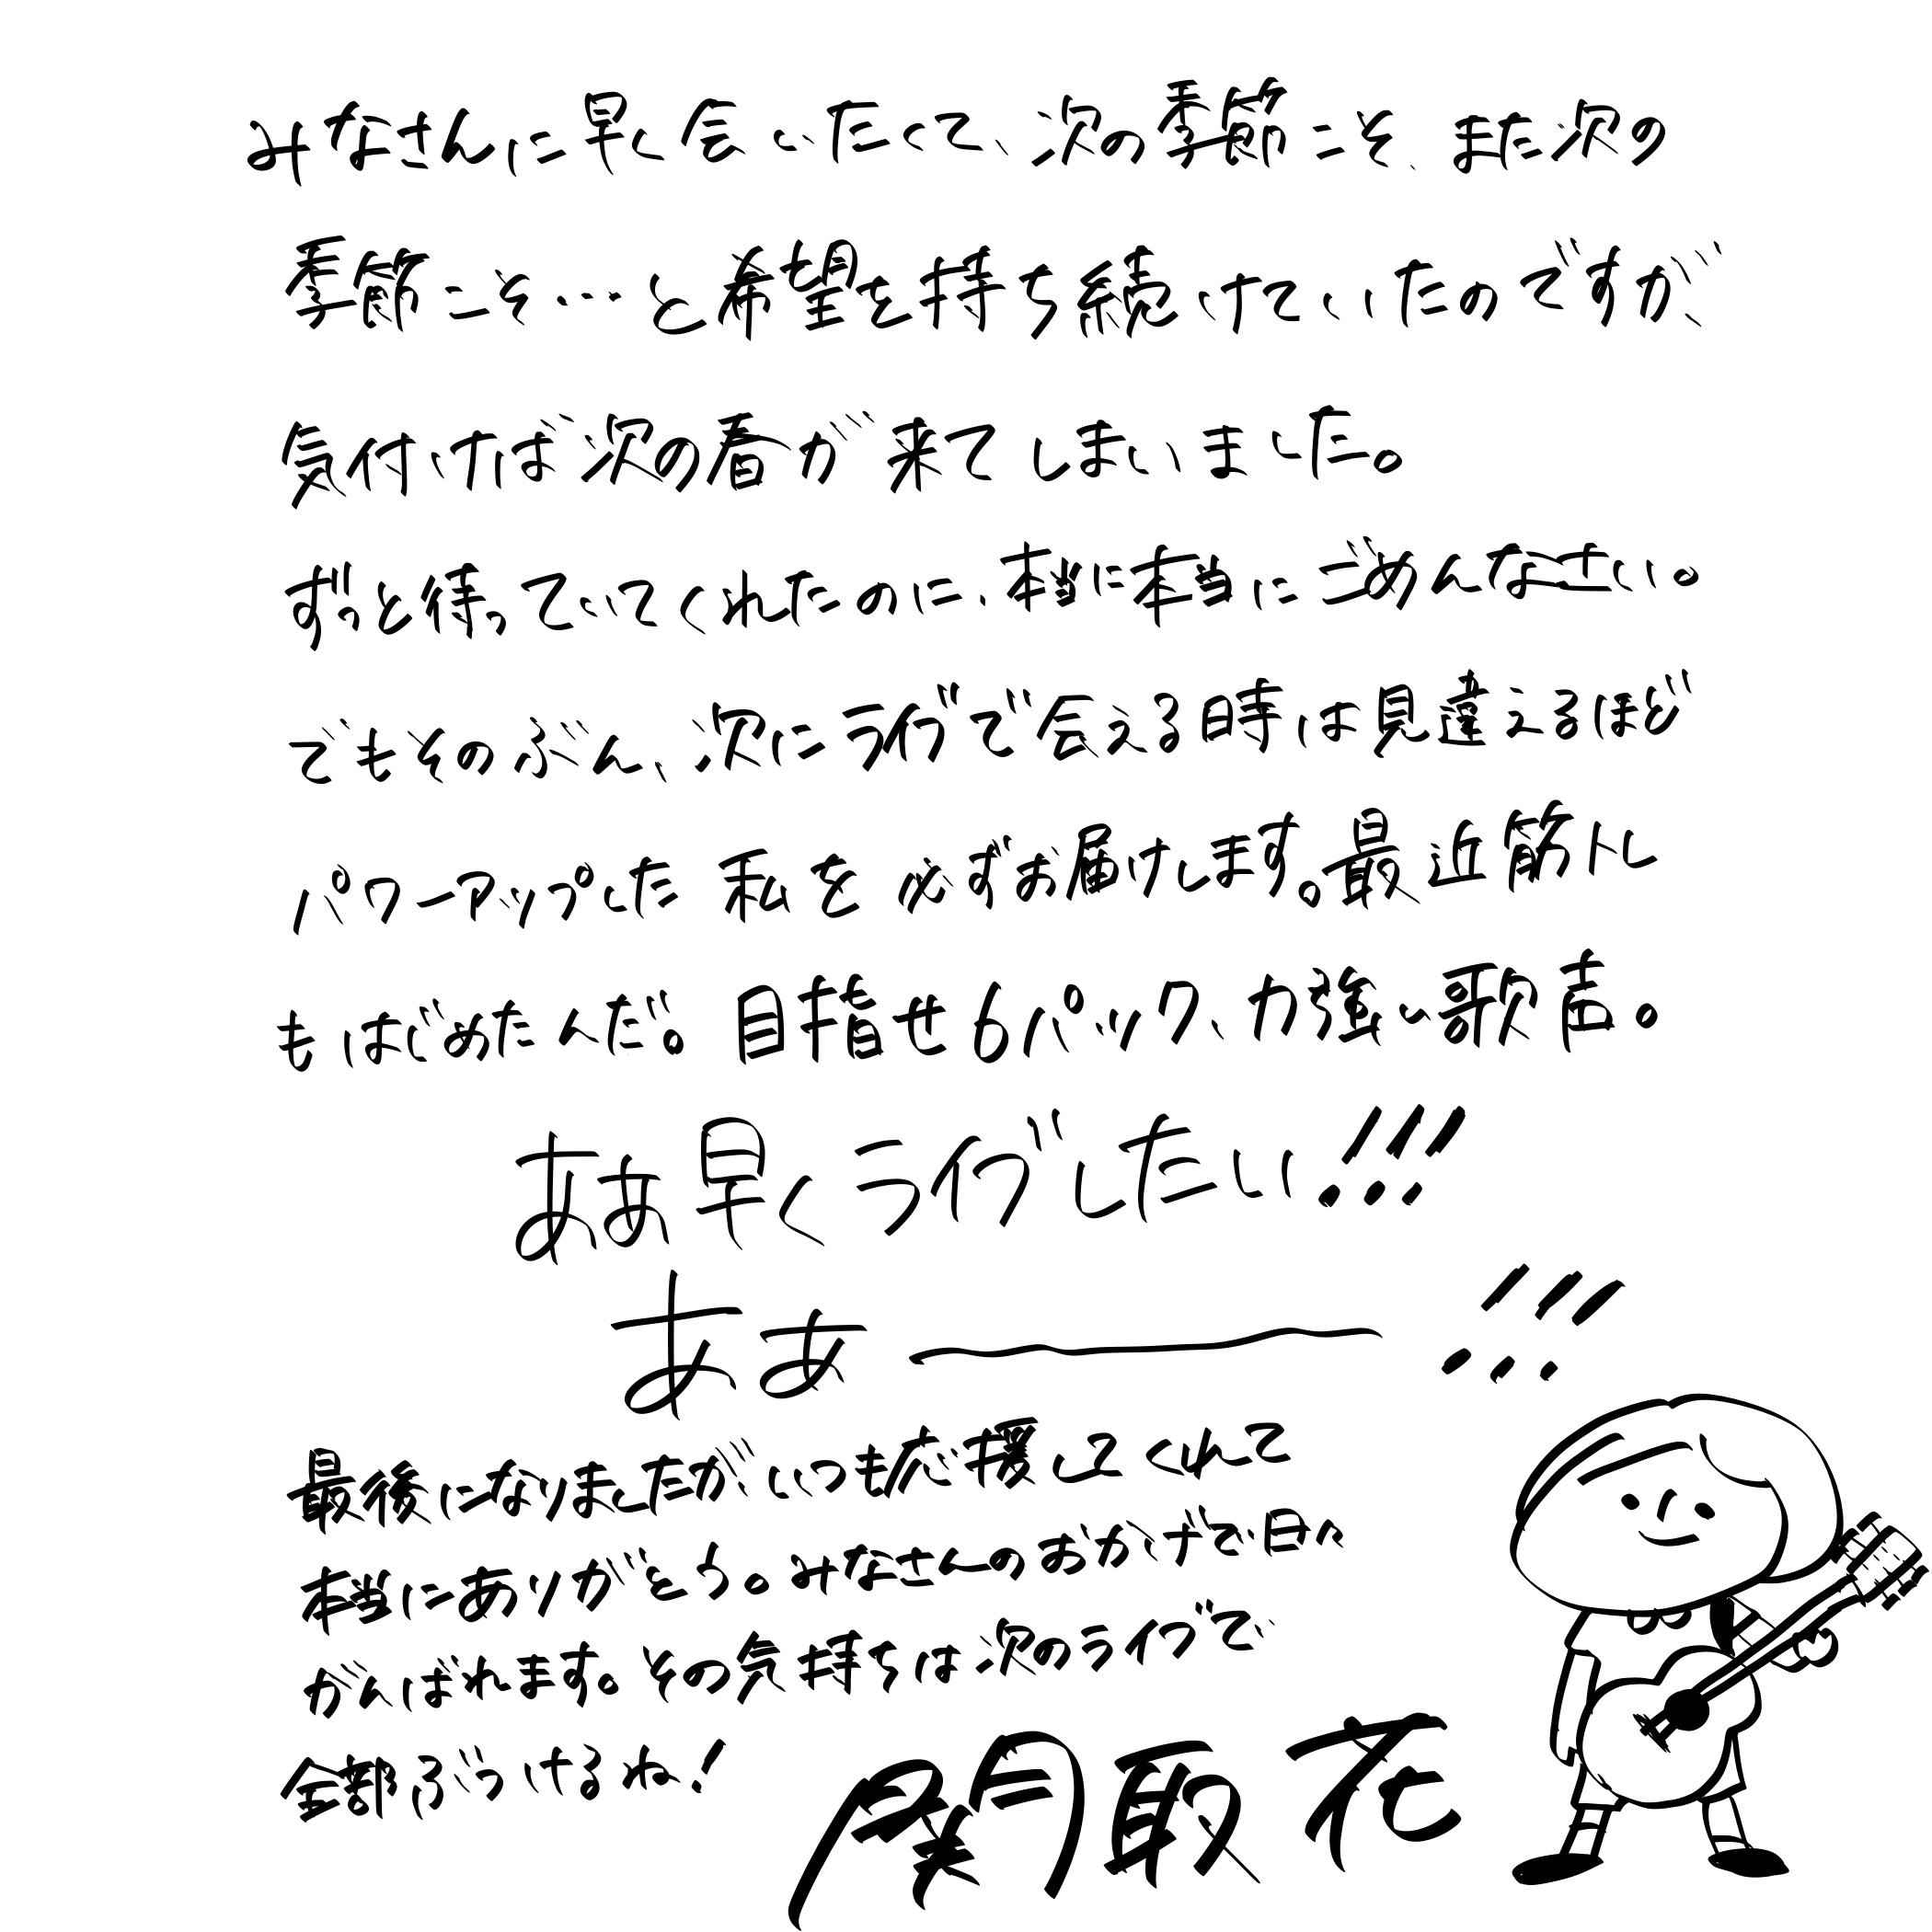 みなさんに早く会いたくて、次の季節こそ、また次の
季節こそ…と希望を持ち続けていたのですが、
気付けば次の春が来てしまいました。
ずっと待っていてくれたのに、本当に本当にごめんなさい。
でもそのぶん、次にライブで会える時は見違えるほど
パワーアップした私をお届けします。最近筋トレ
もはじめたんだ。目指せ6パック、力強い歌声。
ああ早くライブしたい!!!
あぁー!!!
最後になりましたが、いつも応援してくれて
本当にありがとう。みなさんのおかげで日々
がんばれます。この気持ちは次のライブで、
全部ぶつけるね!
関取 花